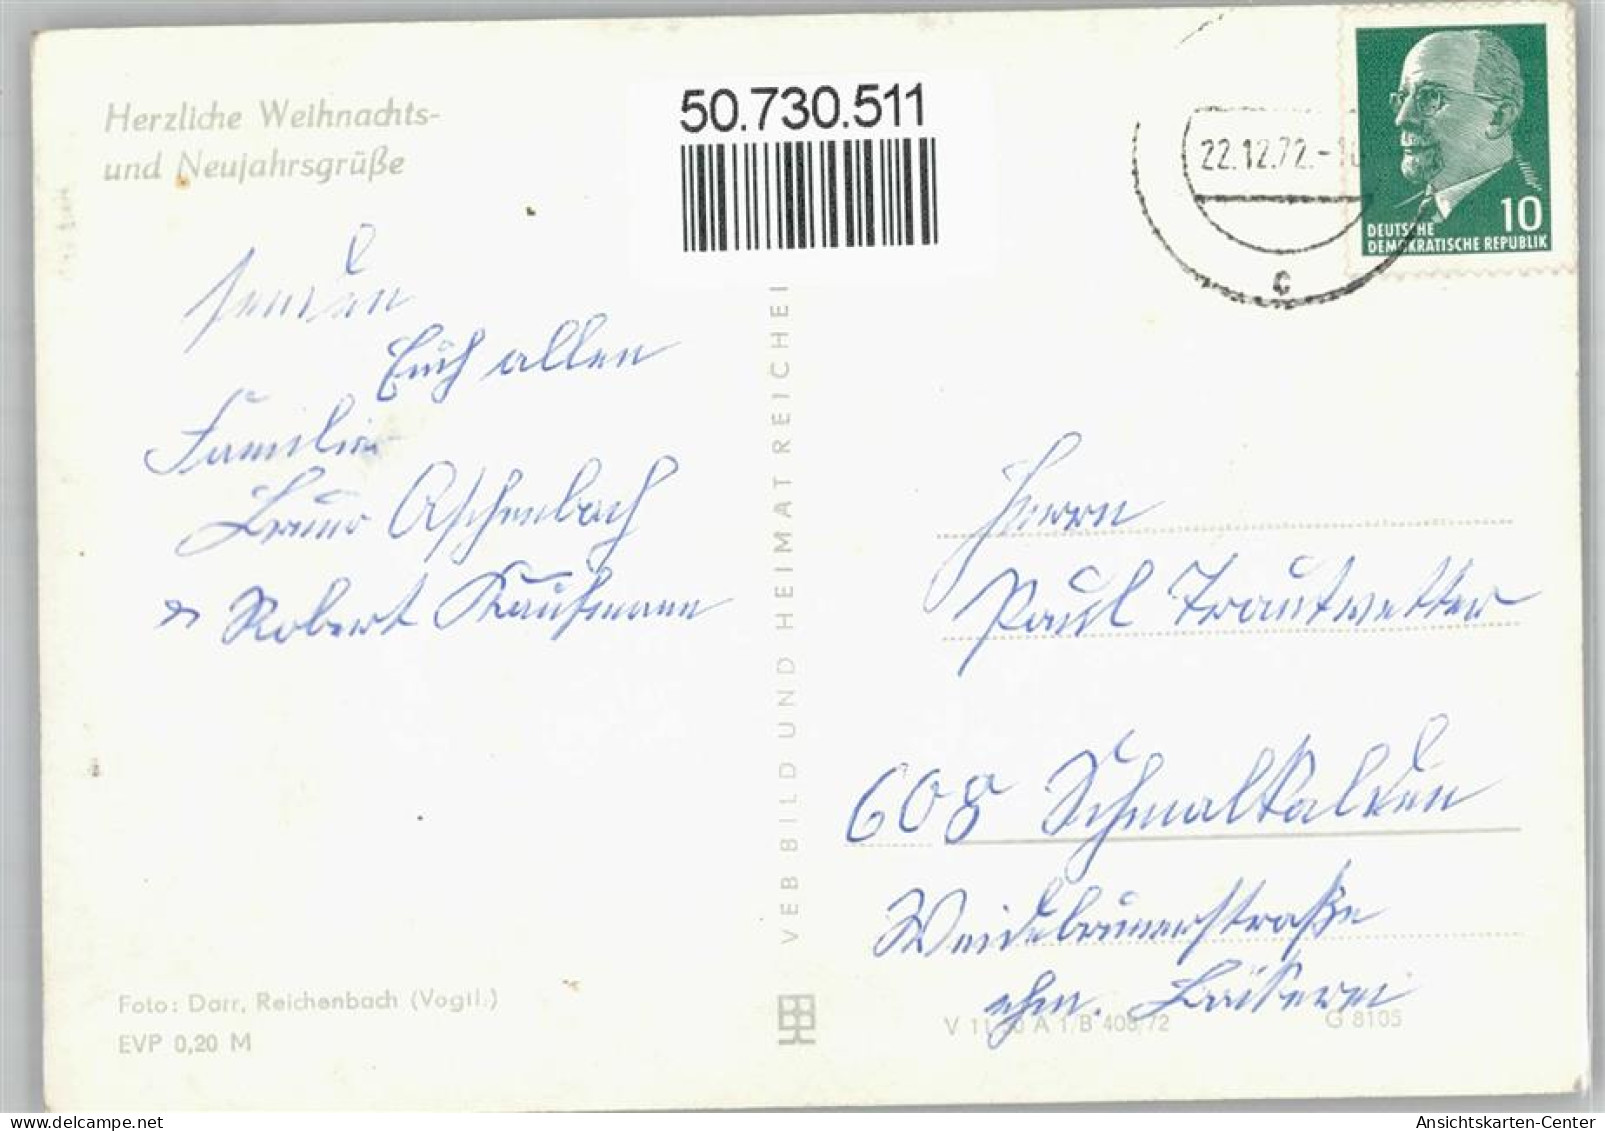 Herzliche Weihnachts-
und Neujahrsgrüße
50.730.511
22.12.72.-
10
DEUTSCHE
DEMOKRATISCHE REPUBLIK
c
senden
Euch allen
Familie
Bruno Aschenbach
Robert Kaufmann
VEB BILD UND HEIMAT REICHE
Herrn
Paul Trautvetter
608 Schmalkalden
Weidebrunnerstraße
ehm. Bäckerei
Foto: Darr, Reichenbach (Vogtl.)
EVP 0,20 M
V 11 50 A 1/B 408/72
G 8105
Ansichtskarten-Center